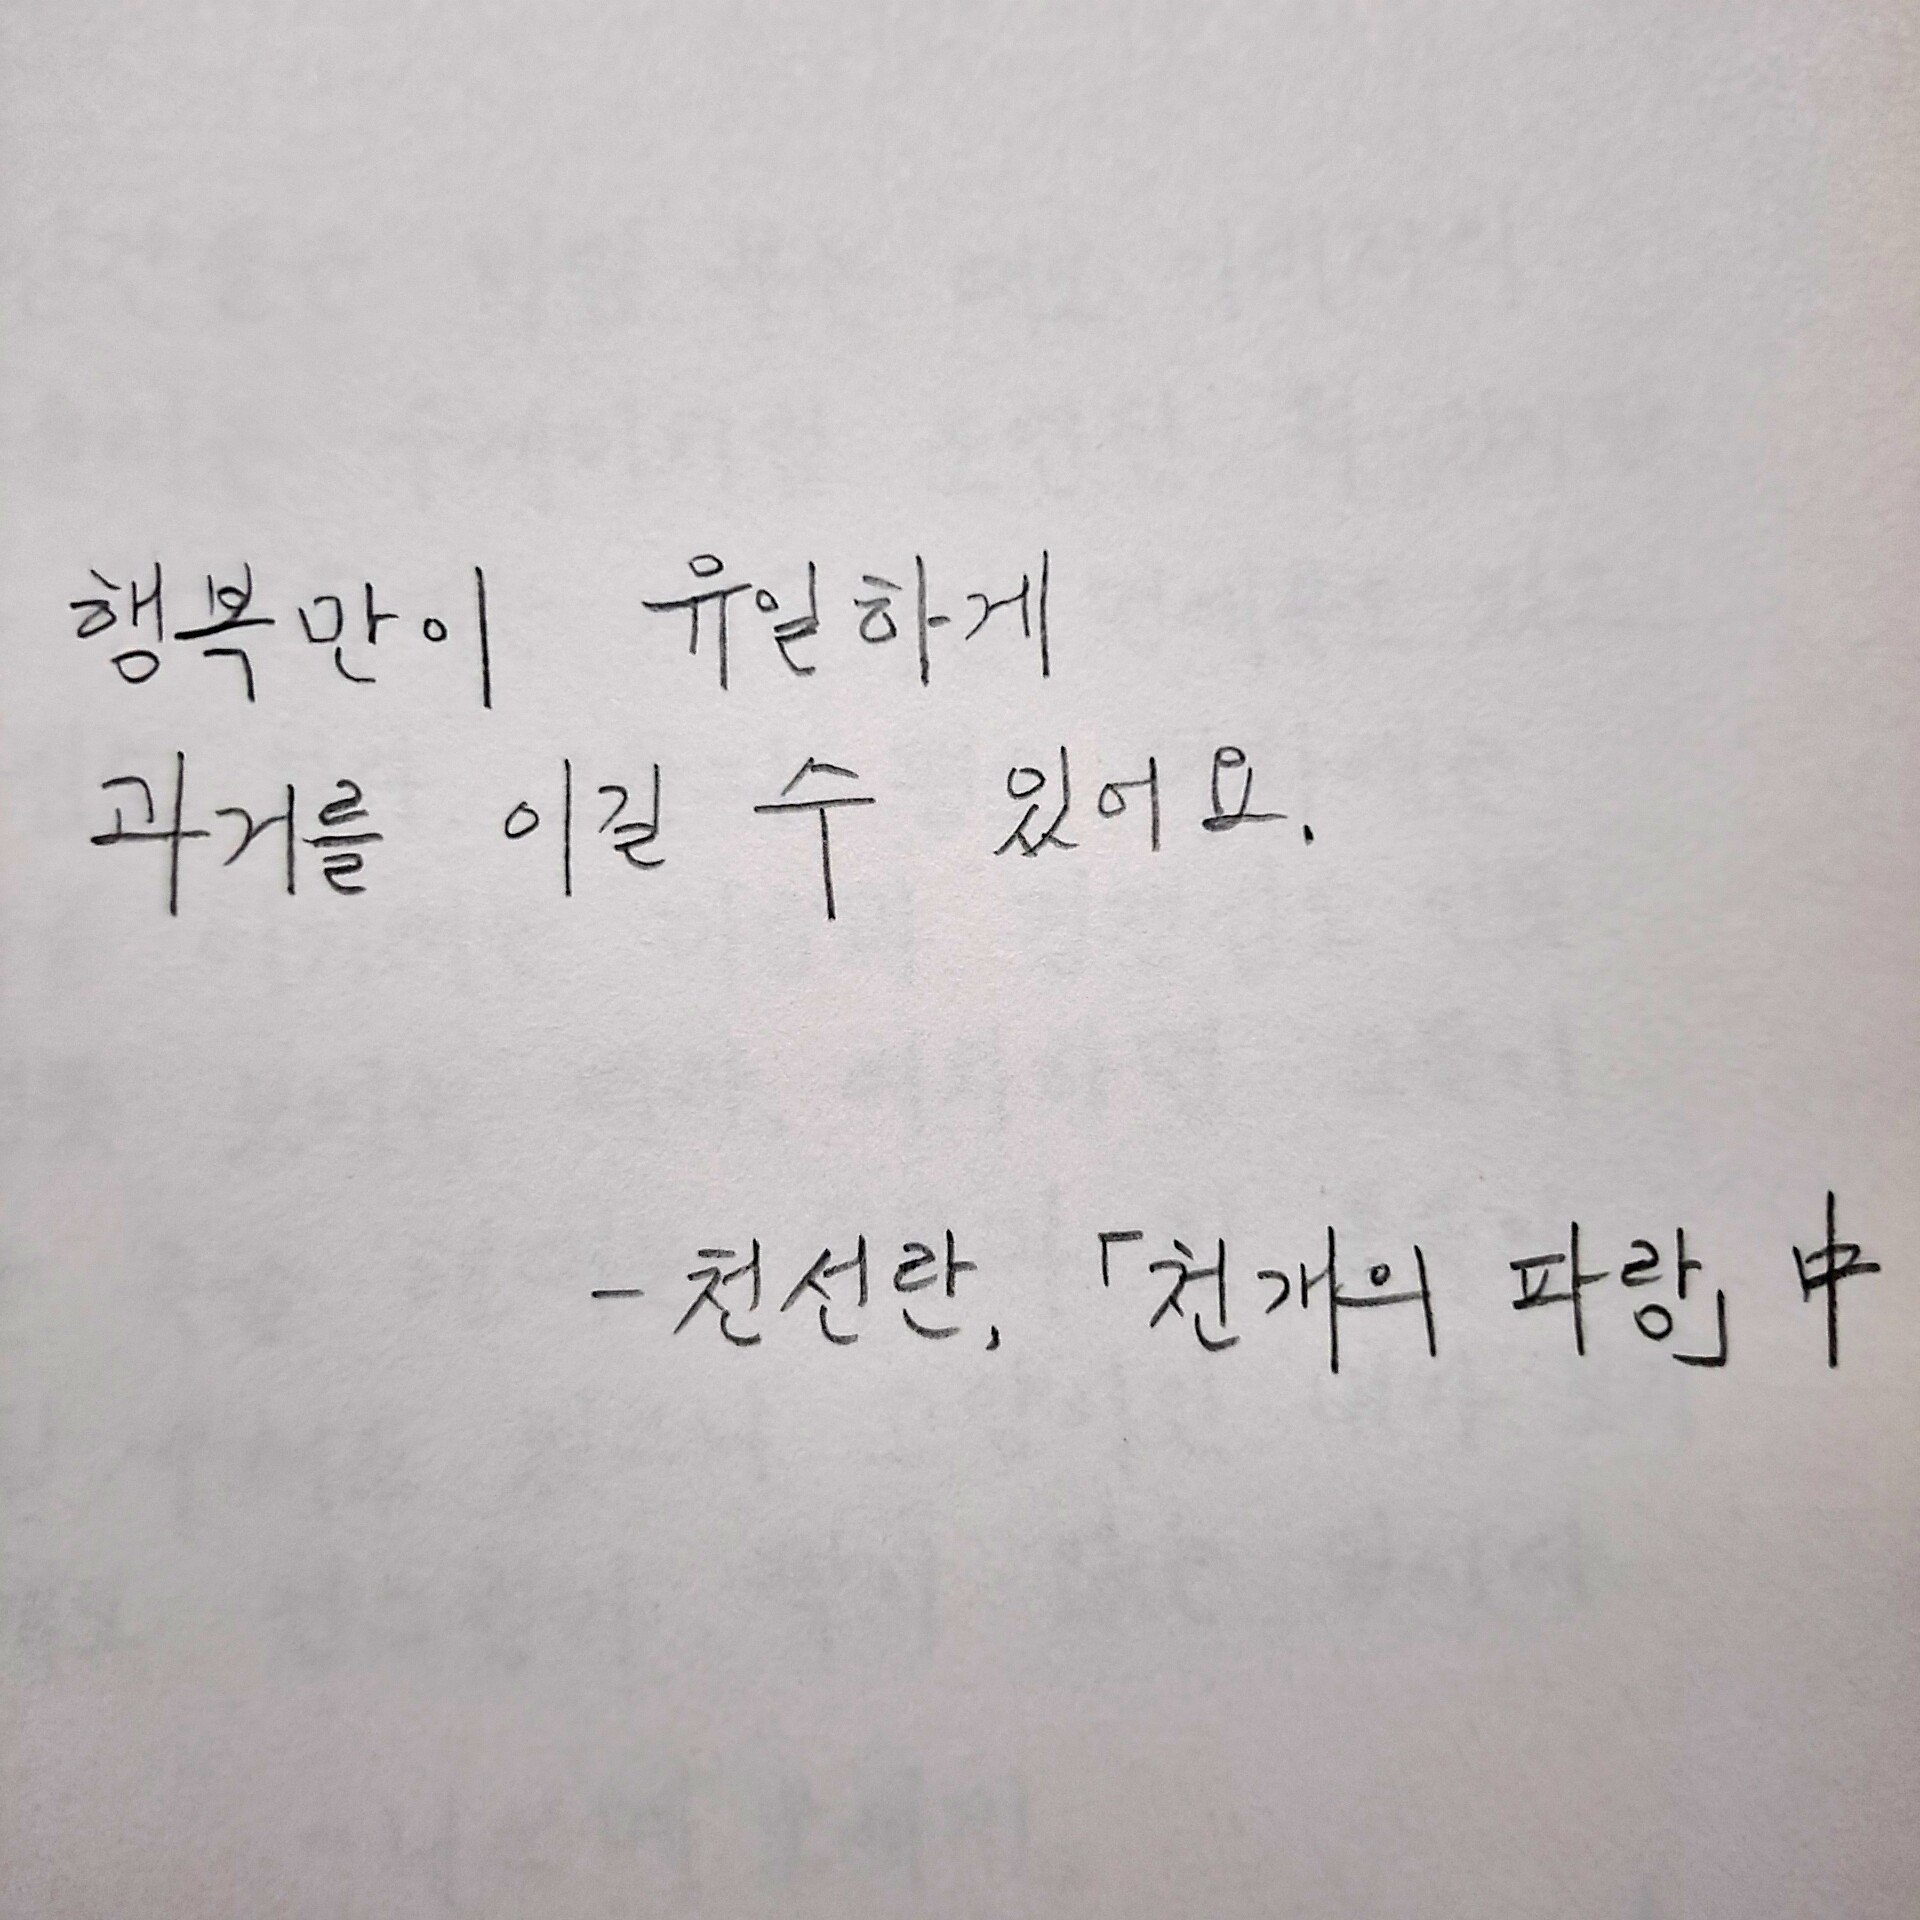 행복만이 유일하게
과거를 이길 수 있어요.
- 천선란, 「천개의 파랑」 中